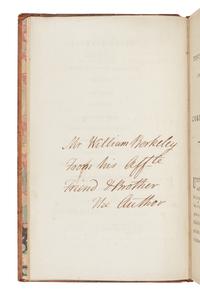 Mr William Berkeley
From his Affte
Friend & Brother
The Author